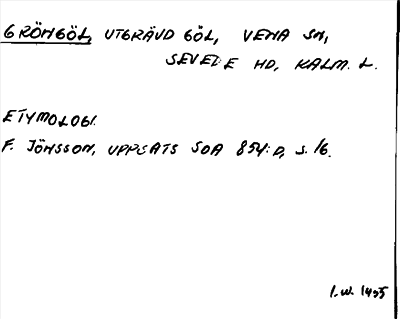 GRÖNGÖL, UTGRÄVD GÖL, VENA SN,
SEVEDE HD, KALM. L.
ETYMOLOGI.
F. JÖNSSON, UPPSATS SOA 854:D, S. 16.
I.W. 1955